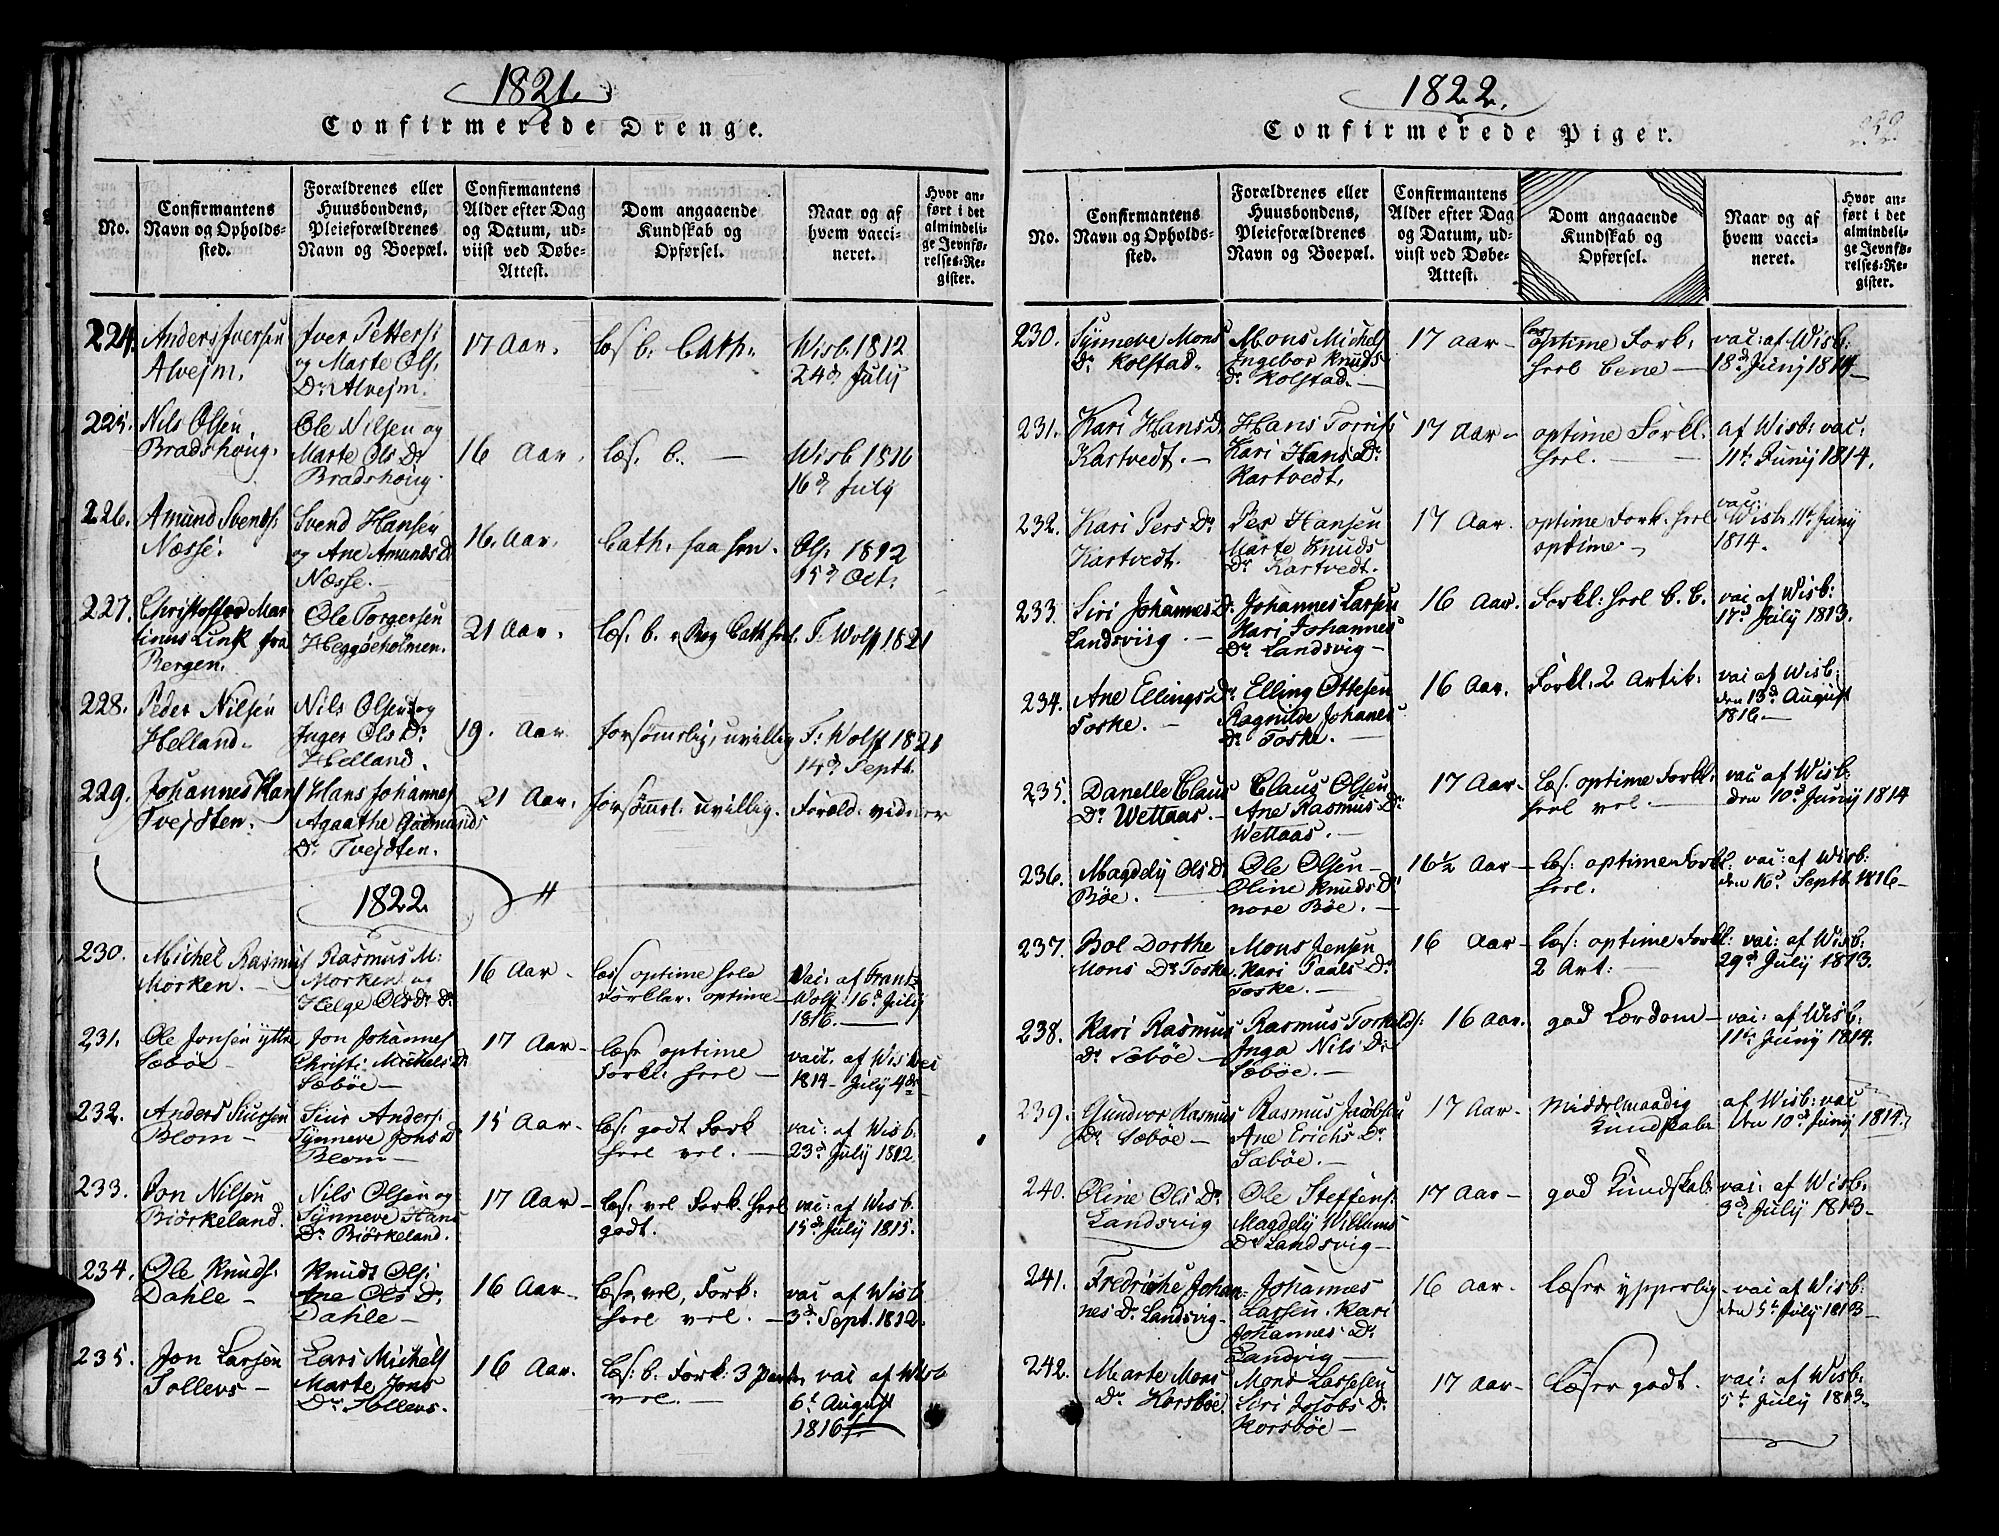 1821.
Confirmerede Drenge.
No.
Confirmantens
Navn og Opholds-
sted.
Forældrenes eller
Huusbondens,
Pleieforældrenes
Navn og Boepæl.
Confirmantens
Alder efter Dag
og Datum, ud-
viist ved Døbe-
Attest.
Dom angaaende
Kundskab og
Opførsel.
Naar og af
hvem vacci-
neret.
Hvor an-
ført i det
almindeli-
ge Jevnfø-
relses-Re-
gister.
224.
Anders Iversen
Alvejm.
Iver Petters:
og Marte Ols
Dr Alvejm.
17 Aar.
læs b. Cath:
Wisb. 1812
24d July
225.
Nils Olsen
Bradshoug.
Ole Nilsen og
Marte Ols Dr
Bradshoug.
16 Aar.
læs. b. —
Wisb 1816
16d July
226.
Amund Svends:
Næsse.
Svend Hansen
og Ane Amunds D.
Næsse.—
16. Aar.
Cath:
Ols. 1812
15d Oct.
227.
Christoffer Mar
tinus Link fra
Bergen.
Ole Torgersen
Heggøeholmen.
21 Aar.
læs. b.
F. Wolff 1821
228.
Peder Nilsen
Helland.
Nils Olsen og
Inger Ols Dr
Helland.
19. Aar
forsømelig, uvillig
F: Wolff 1821
14d Septb.
229.
Johannes Hans
Tvejdten.
Hans Johannes
Agaathe Gudmunds
Dr Tvejdten.
21 Aar.
forsømt. uvillig.
Foræld. vidner
1822
230.
Michel Rasmus
Morken. —
Rasmus M:
Morken og
Helge Ols Dr
16 Aar —
læs optime
Forklar. optime —
Vac: af Frants
Wolf. 16d July
1816. —
231.
Ole Jonsen yttre
Sæbøe —
Jon Johannes
Christi Michels D
Sæbøe —
17 Aar —
læser optime
Forkl:
vacc. af Wisbec
1814 — July 4de
232.
Anders Siursen
Blom —
Siur Anders:
Synneve Johs D
Blom —
15 Aar —
læs: godt Fork
vel. —
vac: af Wisb.
23d July 1812.
233.
Jon Nilsen
Biørkeland.
Nils Olsen og
Synneve Hans
Dr Biørkeland.
17 Aar —
læs: vel Fork.
godt.
vac: af Wisb.
15d July 1815.
234.
Ole Knuds:
Dahle —
Knudt Ols:
Ane Ols Dr
Dahle —
16 Aar —
læser vel, Fork:
vel. —
vac af Wisb
3d Sept. 1812.
235.
Jon Larsen
Sollers —
Lars Michels
Marte Jons
Dr Sollers.
16 Aar.
læs: b. Fork: 3
vel. —
vac af Wisb
6t August
1816
1822.
Confirmerede Piger.
No.
Confirmantens
Navn og Opholds-
sted.
Forældrenes eller
Huusbondens,
Pleieforældrenes
Navn og Boepæl.
Confirmantens
Alder efter Dag
og Datum, ud-
viist ved Døbe-
Attest.
Dom angaaende
Kundskab og
Opførsel.
Naar og af
hvem vacci-
neret.
Hvor an-
ført i det
almindeli-
ge Jevnfø-
relses-Re-
gister.
230.
Synneve Mons
Dr Kolstad.
Mons Michels
Ingebor Knuds
Dr Kolstad. —
17 aar —
læs optime Fork.
bene —
vac: af Wisb:
18d Juny 1814 —
231.
Kari Hans D.
Kartvedt. —
Hans Torris:
Kari Hans Dr
Kartvedt.
17 Aar —
optime Forkl.
af Wisb: vac:
11te Juny 1814.
232.
Kari Pers Dr
Kartvedt.
Per Hansen
Marte Knuds
Dr Kartvedt.
17 Aar —
optime Fork.
optime —
vac:
Wisb. 11te Juny
1814.
233.
Siri Johannes D.
Landsviig. —
Johannes Larsen
Kari Johannes
Dr Landsvig —
16 Aar.
Forkl: b. b.
vac af Wisb:
17d July 1813.
234.
Ane Ellings Dr
Toske. —
Elling Ottesen
Ragnilde Johanes
Dr Toske. —
16 Aar.
Forkl: 2 Artik.
vac af Wisb:
den 13d August
1816 —
235.
Danelle Claus
Dr Wettaas. —
Claus Olsen
Ane Rasmus Dr
Wettaas. —
17 Aar —
læs. optime Forkl:
vel —
vac af Wisb:
den 10d Juny 1814
236.
Magdely Ols Dr
Bøe. —
Ole Olsen —
Oline Knuds Dr
nore Bøe. —
16½ Aar —
læs: optime Forkl:
vac: af Wisb:
den 16d Septb 1816 —
237.
Bol Dorthe
Mons Dr Toske.
Mons Jensen
Kari Paals Dr
Toske. —
16 Aar —
læs: optime Forkl:
2 Art: —
vac: af Wisb:
29d July 1813.
238.
Kari Rasmus
Dr Sæbøe —
Rasmus Torkelds:
Inga Nils Dr
Sæbøe. —
16 Aar.
god Lærdom —
vac: af Wisb:
11te Juny 1814.
239.
Gundvor Rasmus
Dr Sæbøe —
Rasmus Jacobsen
Ane Erichs Dr
Sæbøe. —
17 Aar —
Middelmaadig
Kundskabe
af Wisb: vac
den 10d Juny 1814.
240.
Oline Ols Dr
Landsvig
Ole Steffens:
Magdely Willums
Dr Landsvig —
17 Aar —
god Kundskab:
vac: af Wisb:
3d July 1813 —
241.
Fredriche Johan
nes Dr Landsvig —
Johannes
Larsen. Kari
Johannes Dr
Landvig —
16 Aar —
Læser ypperlig —
vac af Wisb:
den 5t July 1813 —
242.
Marte Mons
Dr Korsbøe
Mons Lassesen
Siri Jacobs Dr
Korsbøe —
17 Aar —
Læser godt.
vac: af Wisb:
5t July 1813 —